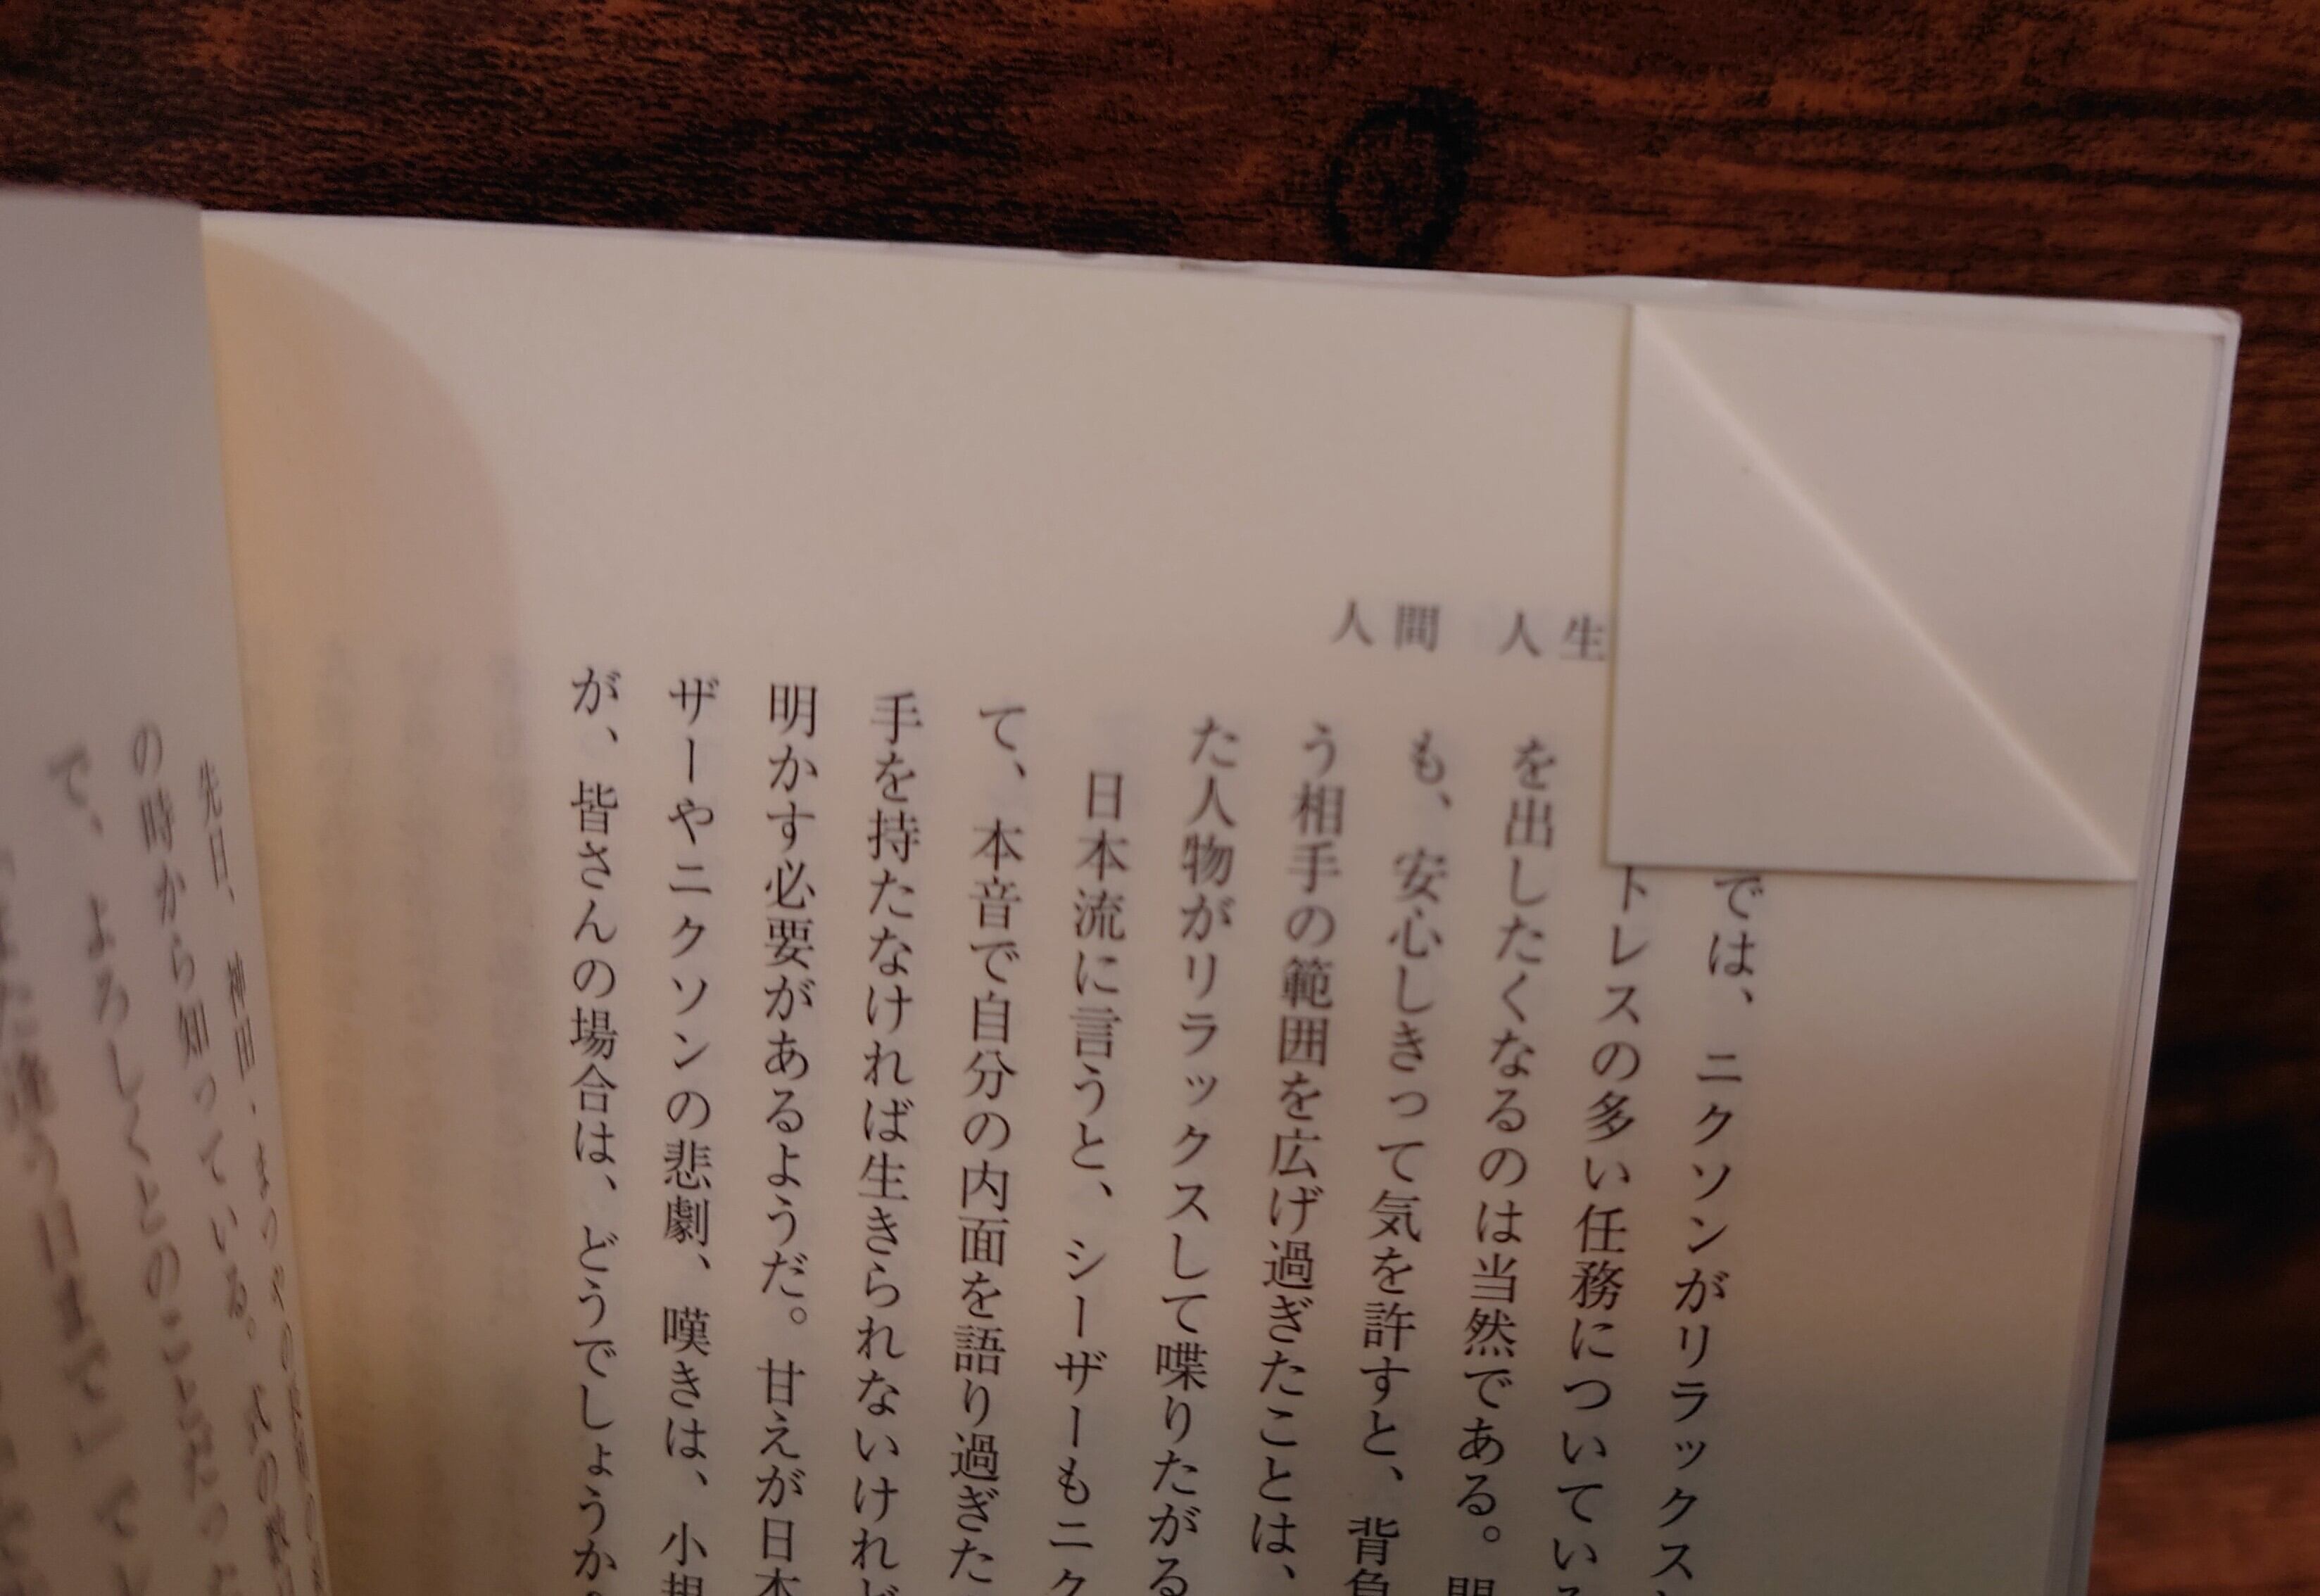 人間　人生
では、ニクソンがリラックス
トレスの多い任務についてい
を出したくなるのは当然である。
も、安心しきって気を許すと、背負
う相手の範囲を広げ過ぎたことは、
た人物がリラックスして喋りたがる
日本流に言うと、シーザーもニク
て、本音で自分の内面を語り過ぎた
手を持たなければ生きられないけれど
明かす必要があるようだ。甘えが日本
ザーやニクソンの悲劇、嘆きは、小規
が、皆さんの場合は、どうでしょうか
先日、神田・まつやの
の時から知っている。
で、よろしくとのことだった